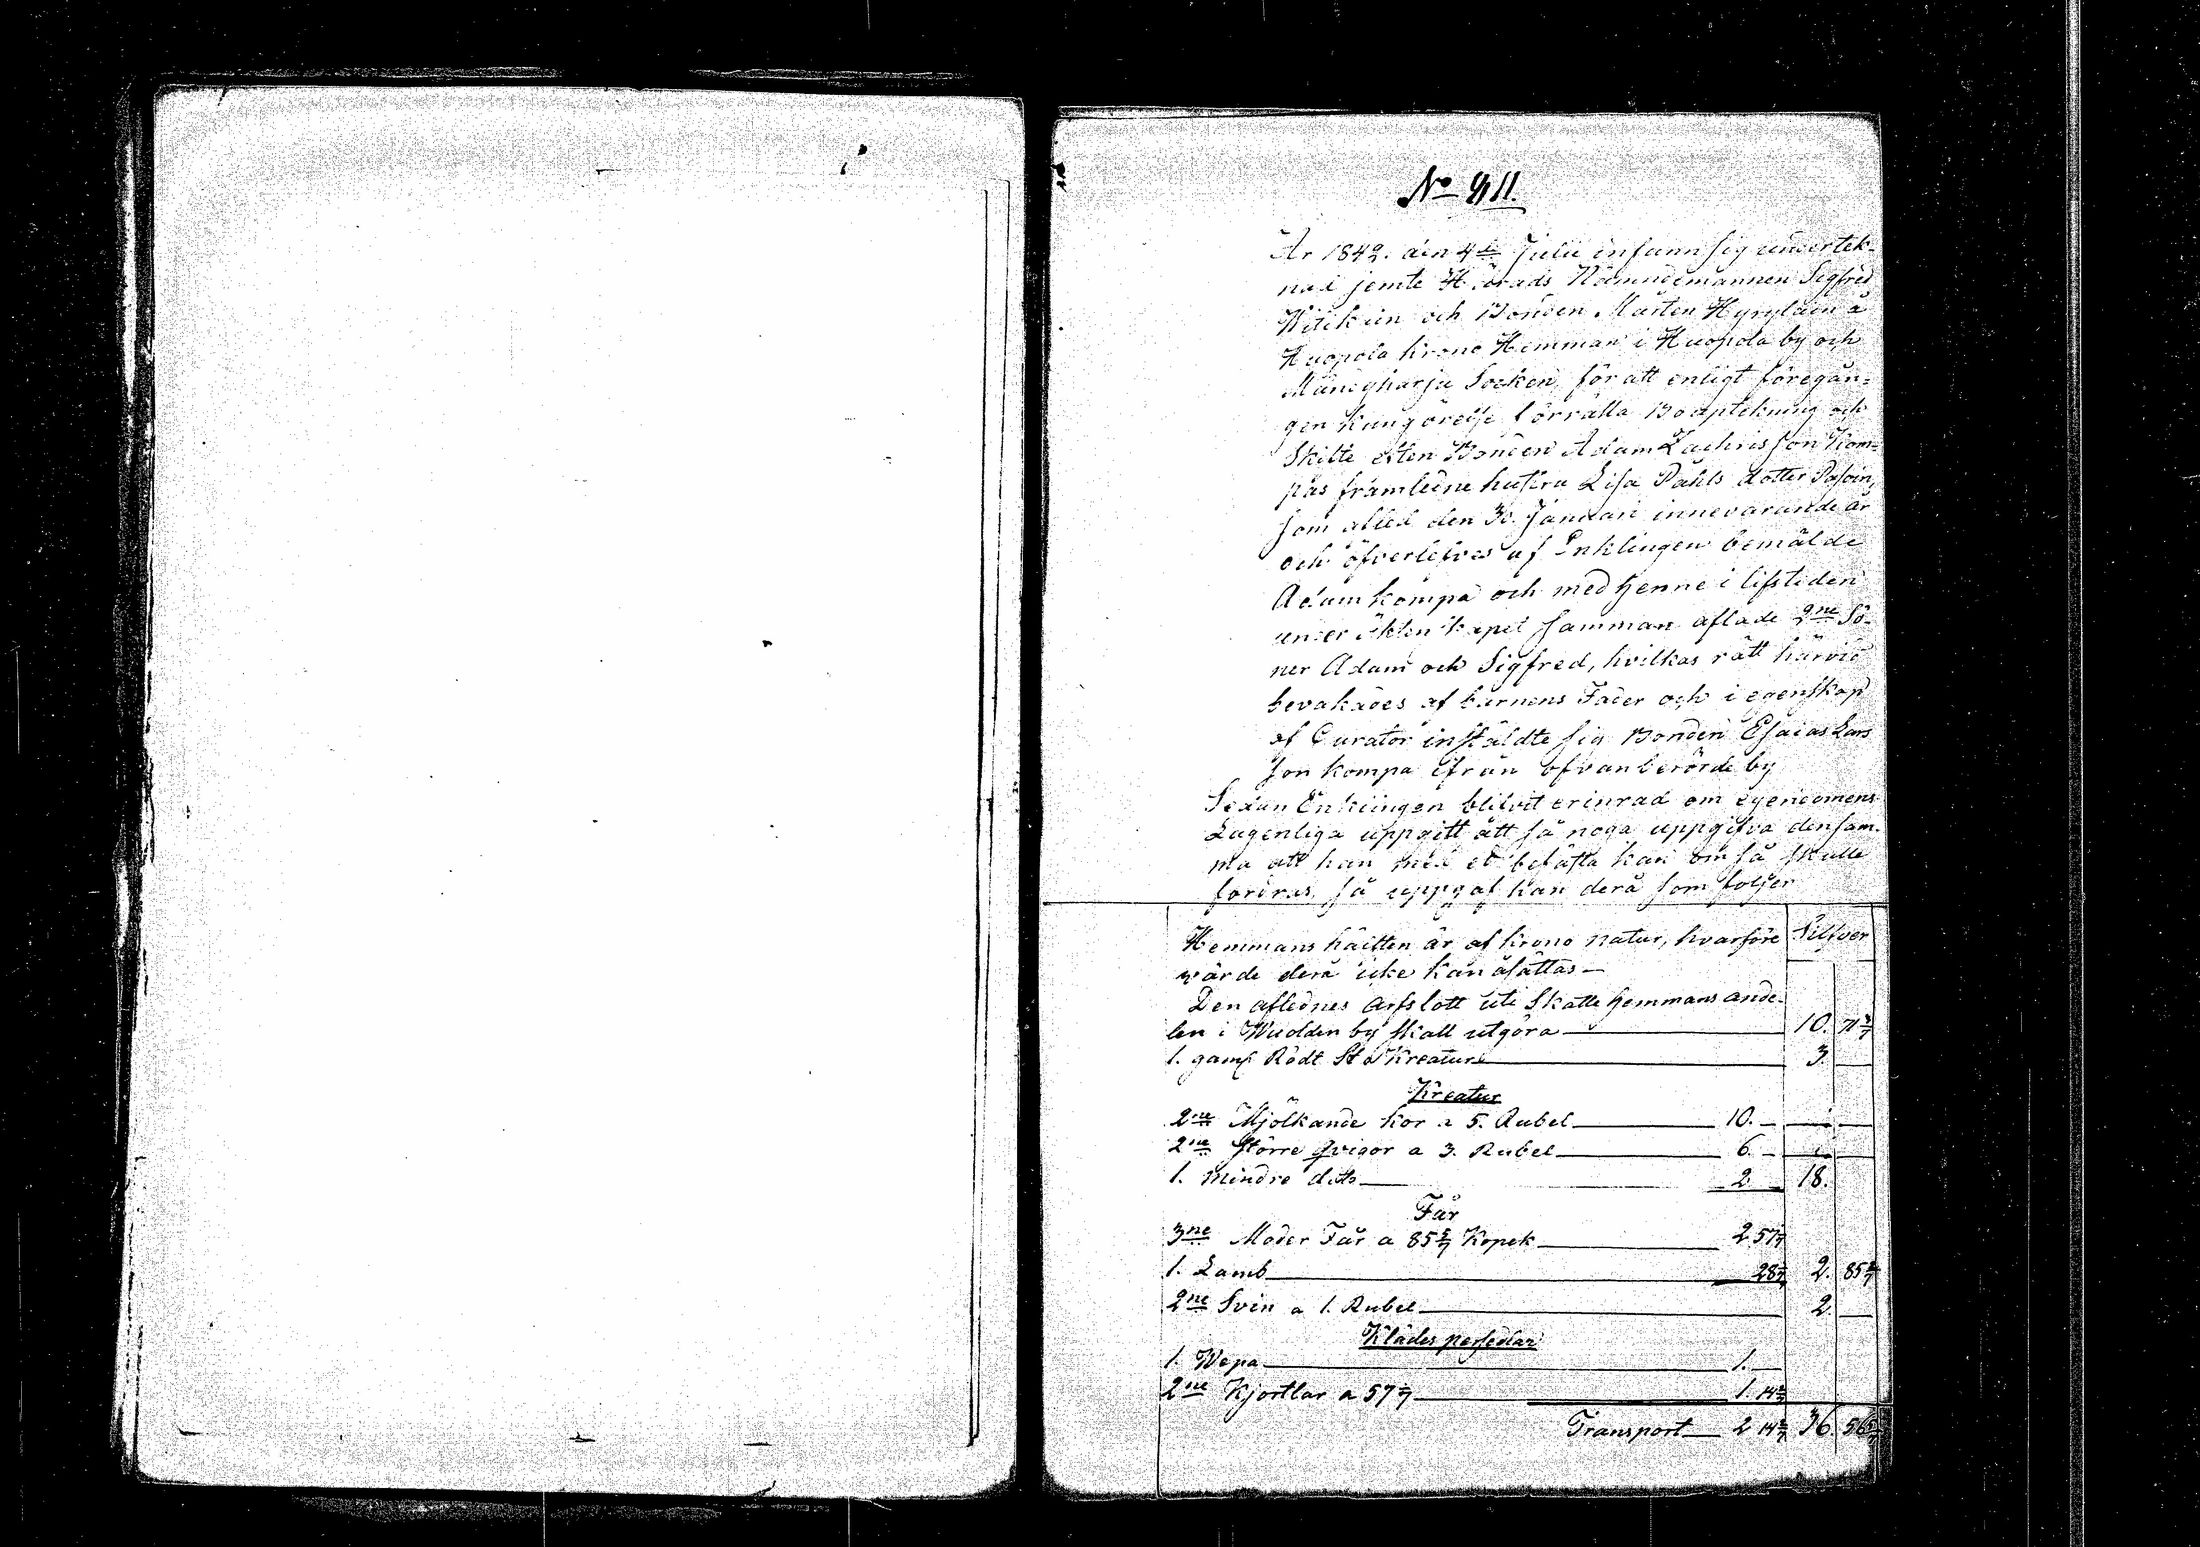 No 811.
År 1842. den 4de Julii infann sig undertek-
nad jemte Härads Nämndemannen Sigfred
Witikain och Bonden Mårten Hyryläin å
Huopola krono Hemman i Huopola by och
Mäntyharju Socken, för att enligt föregån-
gen kungörelse förrätta Bouptekning och
Skifte efter Bonden Adam Zachrisson Kom-
pas framledne hustru Lisa Påhls dotter Pasoin,
som afled den 30. Januari innevarande år
och öfverlefves af Enklingen bemälde
Adam Kompa och med henne i lifstiden
under äktenskapet samman aflade 2ne Sö-
ner Adam och Sigfred, hvilkas rätt härvid
bevakades af barnens Fader och i egenskap
af Curator instäldte sig Bonden Esaias Lars
son Kompa ifrån ofvanberörde by
Sedan Enklingen blifvit erinrad om egendomens
Lagenliga uppgift att så noga uppgifva densam-
ma att han med ed befästa kan om så skulle
fordras, så uppgaf han derå som följer
Hemmans häiften är af krono natur, hvarföre Silfver
värde derå icke kan åsättas —
Den aflednes arfslott uti Skatte hemmans ande-
len i Wuolden by skall utgöra — 10. 71 3/7
1. gam. Rödt Sto Kreatur — 3. —
Kreatur
2ne Mjölkande kor a 5. Rubel — 10. —
2ne större qvigor a 3. Rubel — 6. —
1. mindre dito — 2. 18.
Får
3ne Moder Får a 85 5/7 Kopek — 2 57 1/7
1. Lamb — 28 4/7 2. 85 5/7
2ne Svin a 1. Rubel — 2. —
Klädes persedlar
1. Wepa — 1. —
2ne Kjortlar a 57 1/7 — 1. 14 2/7
Transport — 2 14 2/7 36. 56